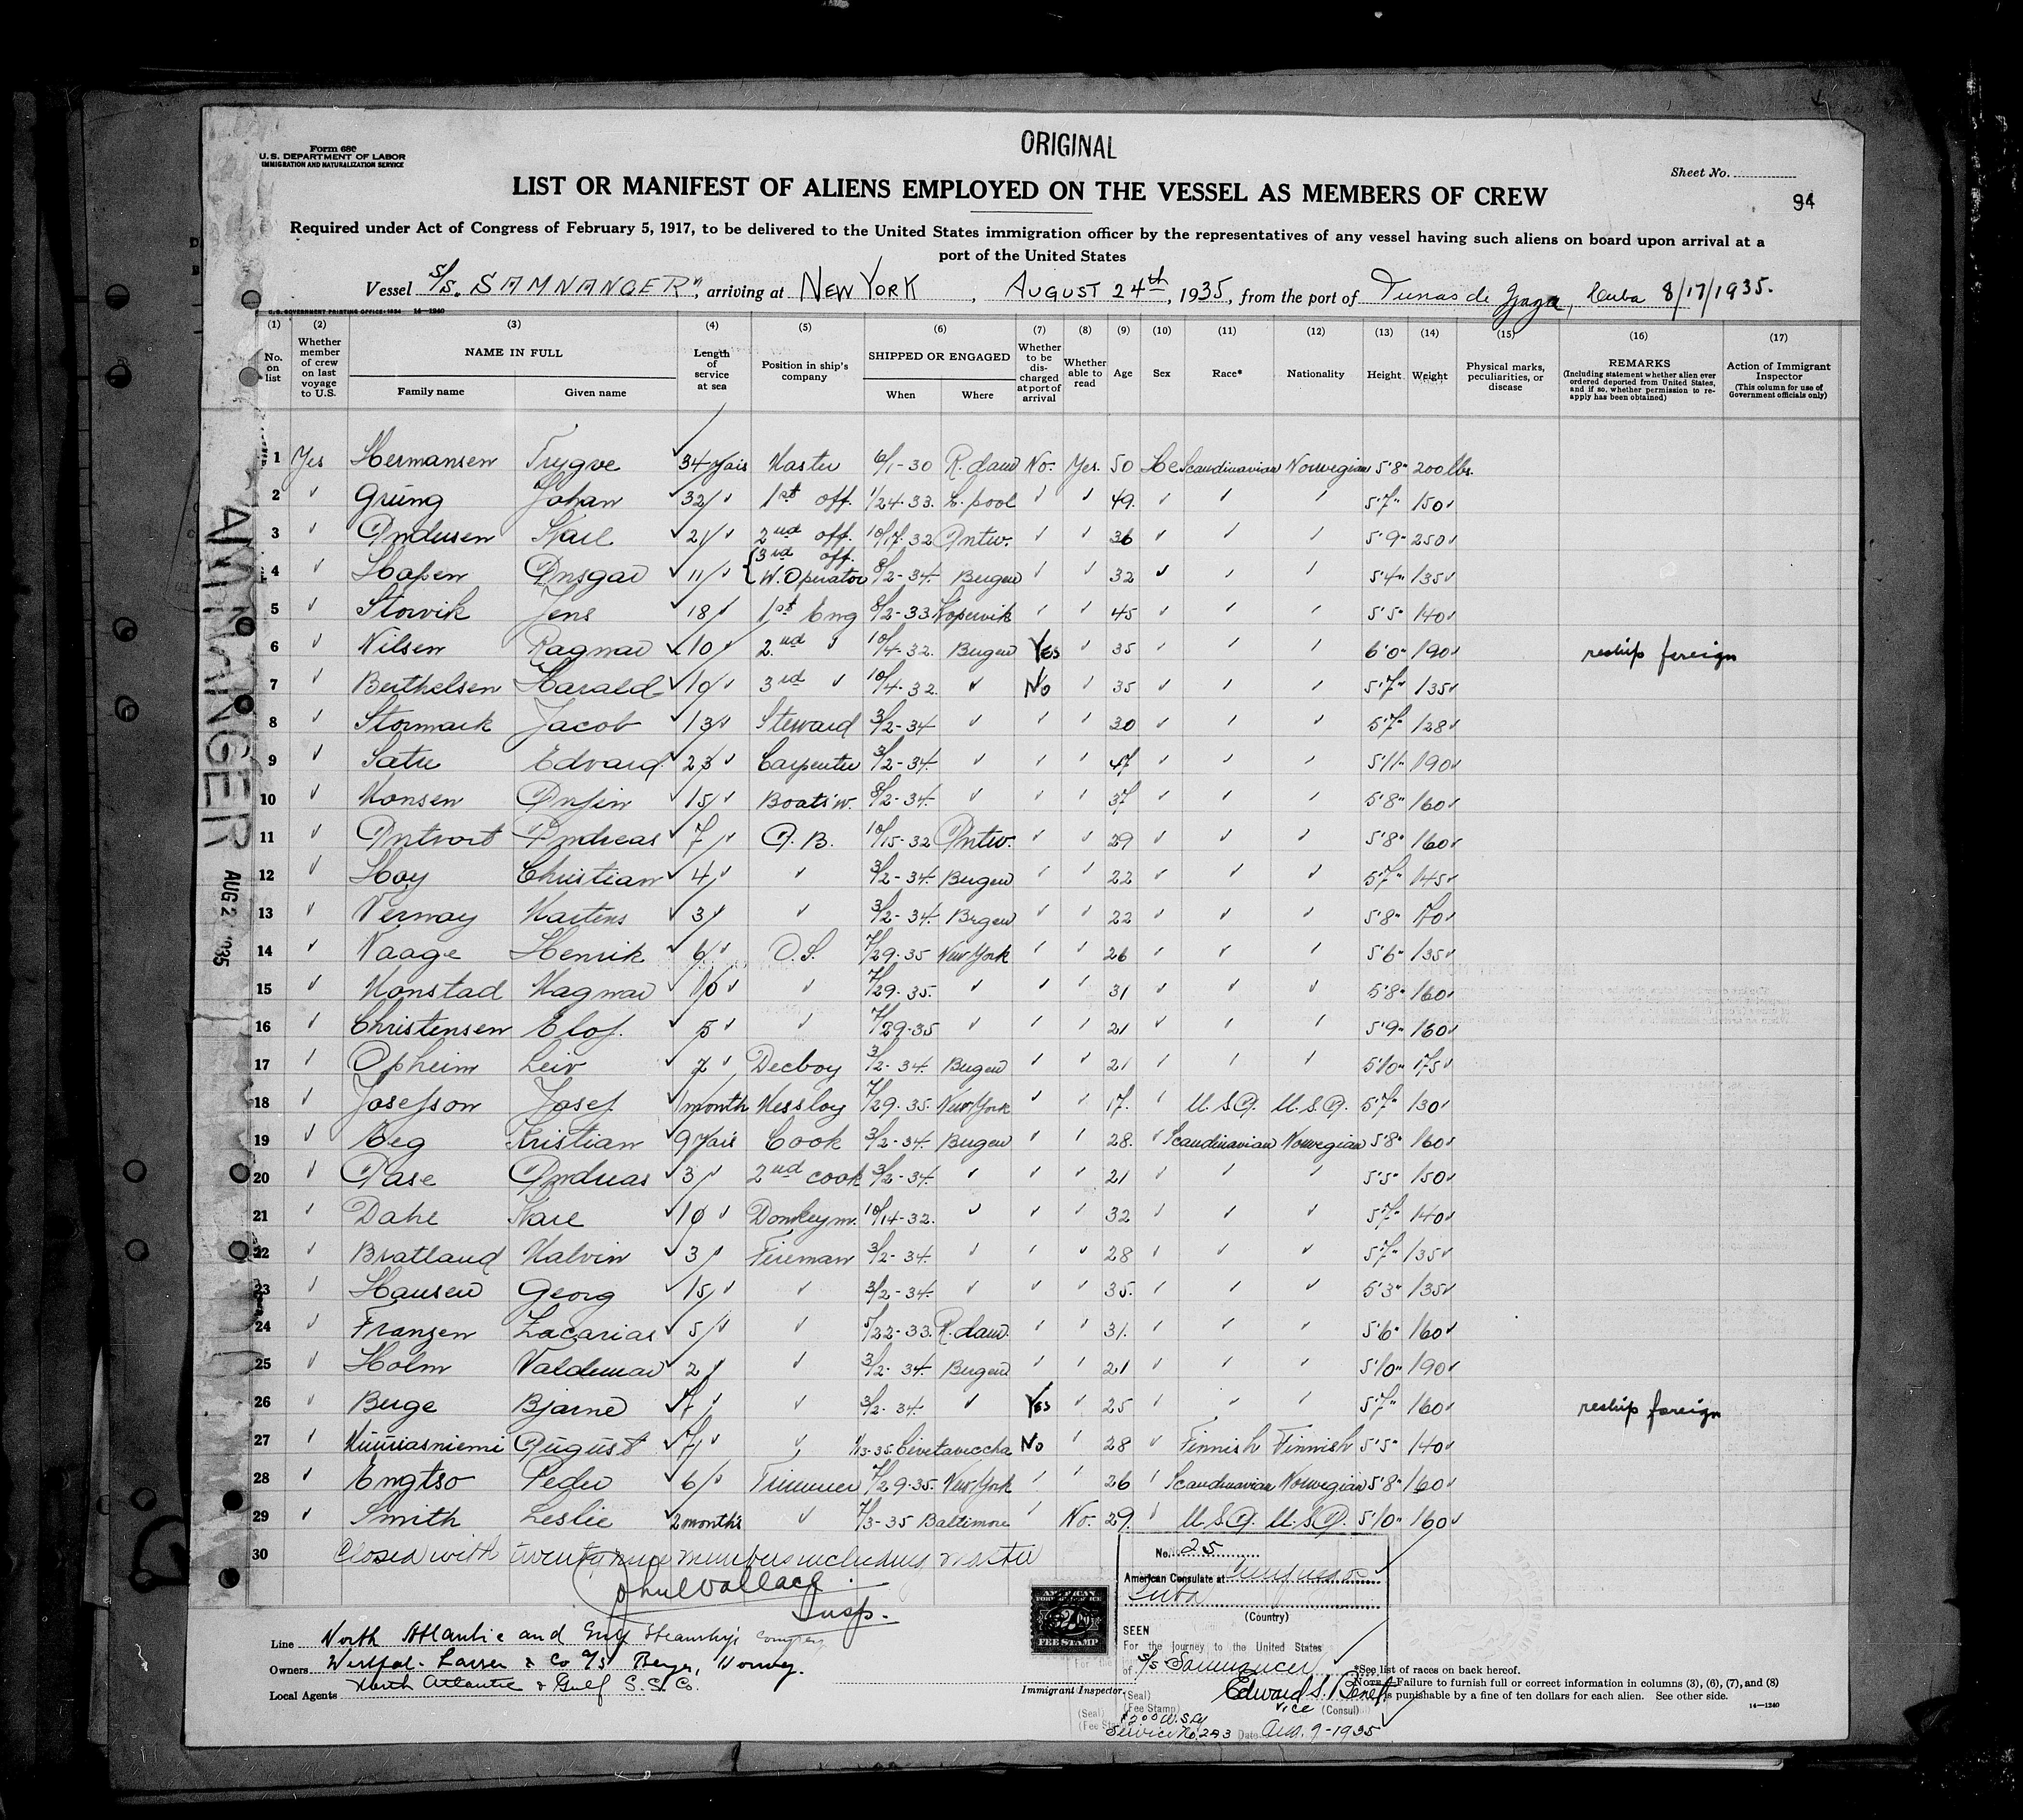 ORIGINAL
Form 680
U.S. DEPARTMENT OF LABOR
IMMIGRATION AND NATURALIZATION SERVICE
Sheet No.
LIST OR MANIFEST OF ALIENS EMPLOYED ON THE VESSEL AS MEMBERS OF CREW
94
Required under Act of Congress of February 5, 1917, to be delivered to the United States immigration officer by the representatives of any vessel having such aliens on board upon arrival at a
port of the United States
Vessel S/S. "SAMNANGER", arriving at NEW YORK, AUGUST 24th, 1935, from the port of Tunas de Zaza, Cuba 8/17/1935.
U.S. GOVERNMENT PRINTING OFFICE: 1934 14—1240
(1) (2) (3) (4) (5) (6) (7) (8) (9) (10) (11) (12) (13) (14) (15) (16) (17)
No. on list Whether member of crew on last voyage to U.S. NAME IN FULL Family name Given name Length of service at sea Position in ship's company SHIPPED OR ENGAGED When Where Whether to be discharged at port of arrival Whether able to read Age Sex Race* Nationality Height Weight Physical marks, peculiarities, or disease REMARKS (Including statement whether alien ever ordered deported from United States, and if so, whether permission to reapply has been obtained) Action of Immigrant Inspector (This column for use of Government officials only)
1 Yes Hermansen Trygve 34 yais Master 6/1-30 R.dam No. Yes. 50 He Scandinavian Norwegian 5'8" 200 lbs.
2 ✓ Grüng Johan 32 1st off. 1/24-33. L.pool ✓ ✓ 49. ✓ ✓ ✓ 5'7" 150
3 ✓ Andersen Karl 21 2nd off. 10/17-32 Antw. ✓ ✓ 36 ✓ ✓ ✓ 5'9" 250
4 ✓ Hansen Ansgar 11 3rd off. W. Operator 8/2-34 Bergen ✓ ✓ 32 ✓ ✓ ✓ 5'4" 135
5 ✓ Storvik Jens 18 1st Eng 8/2-33 Kopervik ✓ ✓ 45 ✓ ✓ ✓ 5'5" 140
6 ✓ Nilsen Ragnar 10 2nd ✓ 10/4-32. Bergen Yes ✓ 35 ✓ ✓ ✓ 6'0" 190 reship foreign
7 ✓ Berthelsen Harald 10 3rd ✓ 10/4-32. ✓ No ✓ 35 ✓ ✓ ✓ 5'7" 135
8 ✓ Stormark Jacob 13 Steward 3/2-34 ✓ ✓ ✓ 30 ✓ ✓ ✓ 5'7" 128
9 ✓ Satre Edvard 23 Carpenter 3/2-34. ✓ ✓ ✓ 47 ✓ ✓ ✓ 5'11" 190
10 ✓ Monsen Anfin 15 Boatsw. 8/2-34. ✓ ✓ ✓ 37 ✓ ✓ ✓ 5'8" 160
11 ✓ Andreas 7 A.B. 10/15-32 Antw. ✓ ✓ 29 ✓ ✓ ✓ 5'8" 160
12 ✓ Hoy Christian 4 ✓ 3/2-34. Bergen ✓ ✓ 22 ✓ ✓ ✓ 5'7" 145
13 ✓ Vernay Martens 3 ✓ 3/2-34. Brgen ✓ ✓ 22 ✓ ✓ ✓ 5'8" 70
14 ✓ Vaage Henrik 6 O.S. 7/29-35 New York ✓ ✓ 26 ✓ ✓ ✓ 5'6" 135
15 ✓ Monstad Magnar 10 ✓ 7/29-35. ✓ ✓ ✓ 31 ✓ ✓ ✓ 5'8" 160
16 ✓ Christensen Elof. 5 ✓ 7/29-35 ✓ ✓ ✓ 21 ✓ ✓ ✓ 5'9" 160
17 ✓ Opheim Leiv 2 Decboy 3/2-34. Bergen ✓ ✓ 21 ✓ ✓ ✓ 5'10" 175
18 ✓ Josefson Josef 1 month Messboy 7/29-35. New York ✓ ✓ 17. ✓ U.S.A. U.S.A. 5'7" 130
19 ✓ Aeg Kristian 9 yais Cook 3/2-34. Bergen ✓ ✓ 28. ✓ Scandinavian Norwegian 5'8" 160
20 ✓ Aase Andreas 3 2nd cook 3/2-34. ✓ ✓ ✓ 21 ✓ ✓ ✓ 5'5" 150
21 ✓ Dahl Kare 10 Donkeym. 10/14-32. ✓ ✓ ✓ 32 ✓ ✓ ✓ 5'7" 140
22 ✓ Bratland Malvin 3 Fireman 3/2-34. ✓ ✓ ✓ 28 ✓ ✓ ✓ 5'7" 135
23 ✓ Hansen Georg 15 ✓ 3/2-34. ✓ ✓ ✓ 35. ✓ ✓ ✓ 5'3" 135
24 ✓ Franzen Zacarias 5 ✓ 5/22-33. R.dam. ✓ ✓ 31. ✓ ✓ ✓ 5'6" 160
25 ✓ Holm Valdemar 2 ✓ 3/2-34. Bergen ✓ ✓ 21 ✓ ✓ ✓ 5'10" 190
26 ✓ Berge Bjarne 7 ✓ 3/2-34. ✓ Yes ✓ 25 ✓ ✓ ✓ 5'7" 160 reship foreign
27 ✓ August 7 ✓ 1/13-35. Civetaveccha No ✓ 28 ✓ Finnish Finnish 5'5" 140
28 ✓ Engtso Peder 6 Trimmer 7/29-35. New York ✓ ✓ 26 ✓ Scandinavian Norwegian 5'8" 160
29 ✓ Smith Leslie 2 months ✓ 7/3-35 Baltimore ✓ No. 29. ✓ U.S.A. U.S.A. 5'10" 160
30 Closed with twenty nine members including master
John Wallace
Insp.
SAMNANGER AUG 2 1935
AMERICAN FOREIGN SERVICE $2.00 FEE STAMP
No. 25
American Consulate at Cienfuegos
Cuba
(Country)
SEEN
For the journey to the United States
of S/S Samnanger
Edward S. Benet
Vice (Consul)
(Seal)
(Fee Stamp)
Service No. 293 Date Aug. 9-1935
Line North Atlantic and Gulf Steamship Company
Owners Westfal-Larsen & Co A/S Bergen, Norway.
Local Agents North Atlantic & Gulf S.S. Co.
Immigrant Inspector
*See list of races on back hereof.
NOTE.—Failure to furnish full or correct information in columns (3), (6), (7), and (8)
is punishable by a fine of ten dollars for each alien. See other side.
14—1240